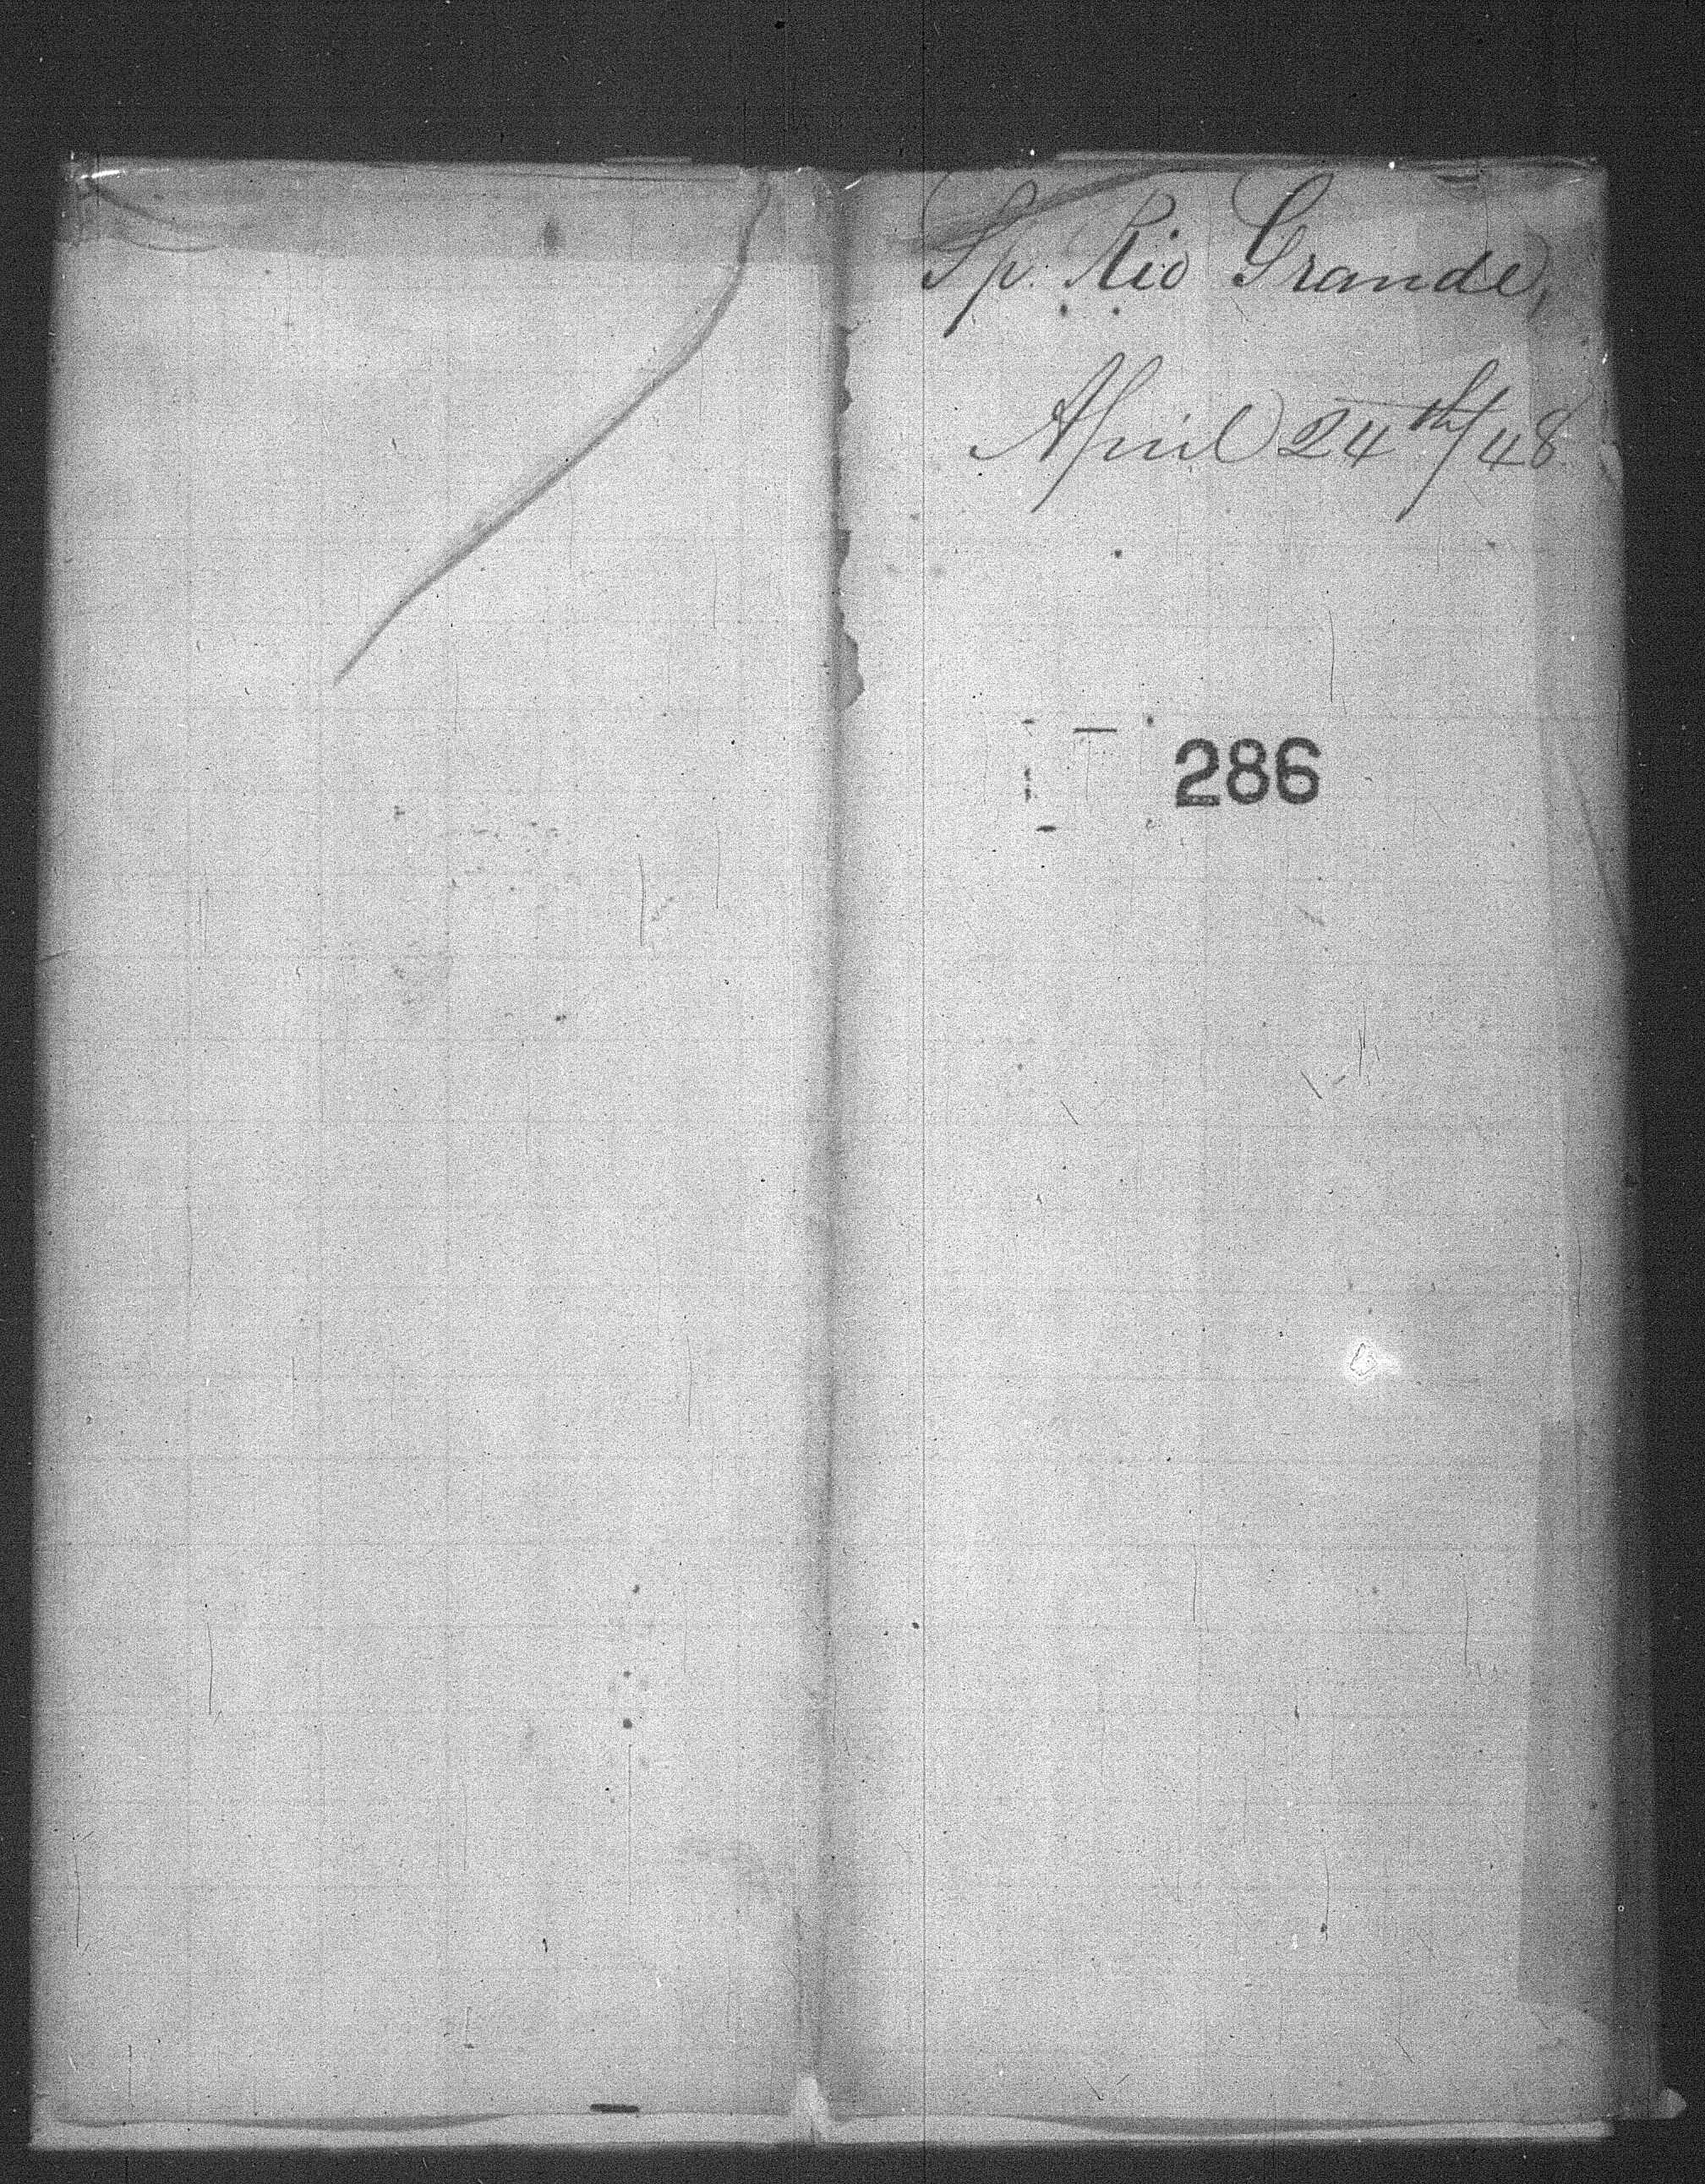 Sp. Rio Grande,
April 24th/48
286